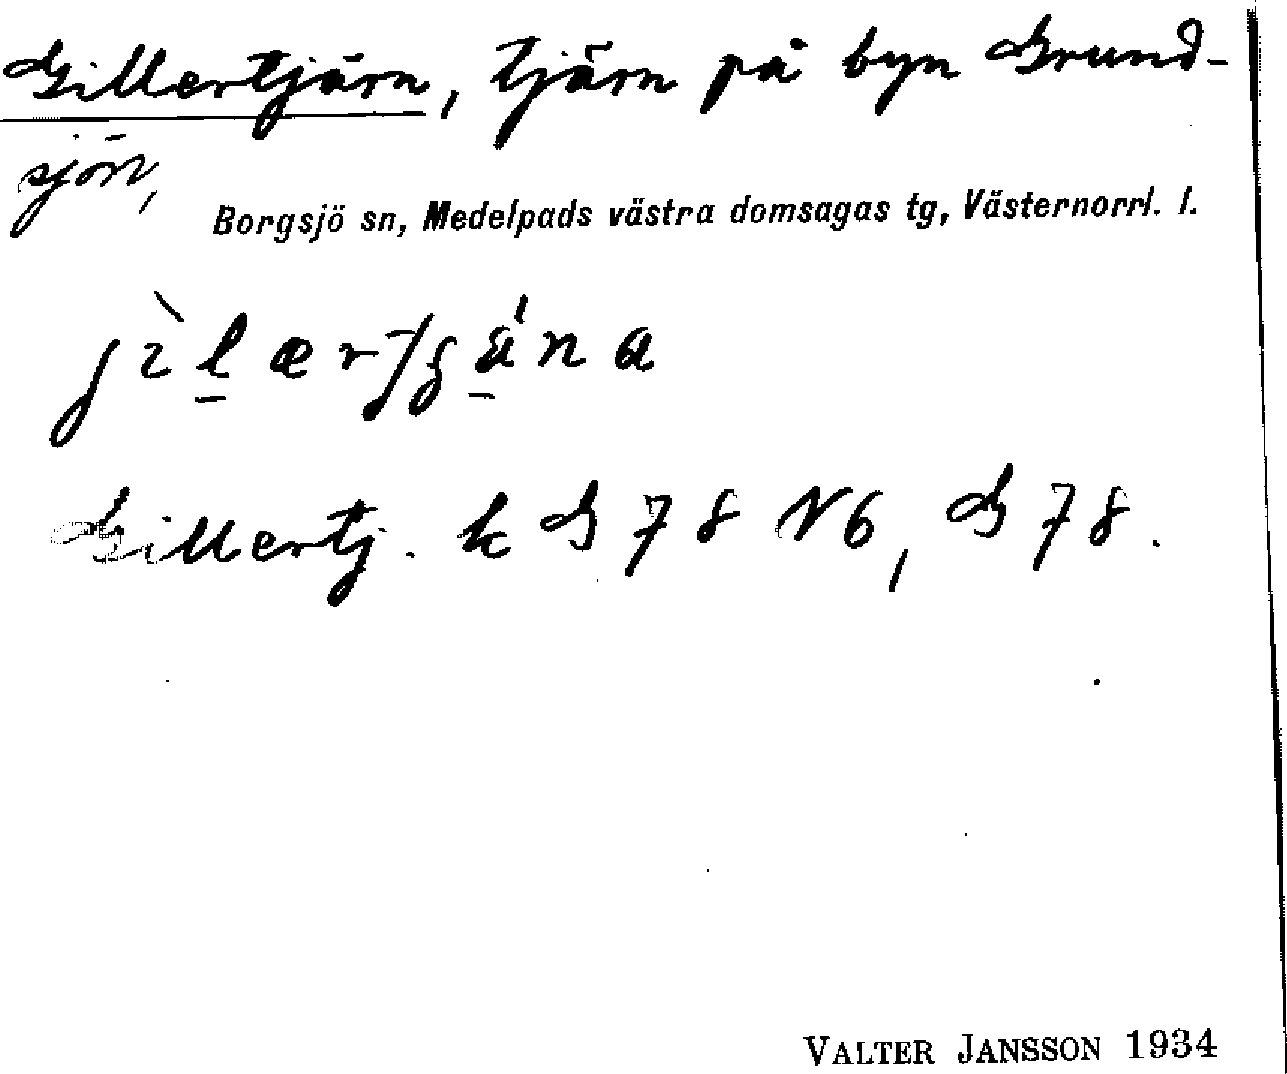 Gillertjärn, tjärn på byn Grund-
sjön,
Borgsjö sn, Medelpads västra domsagas tg, Västernorrl. l.
Gillertj. k G 78 N6, G 78.
VALTER JANSSON 1934